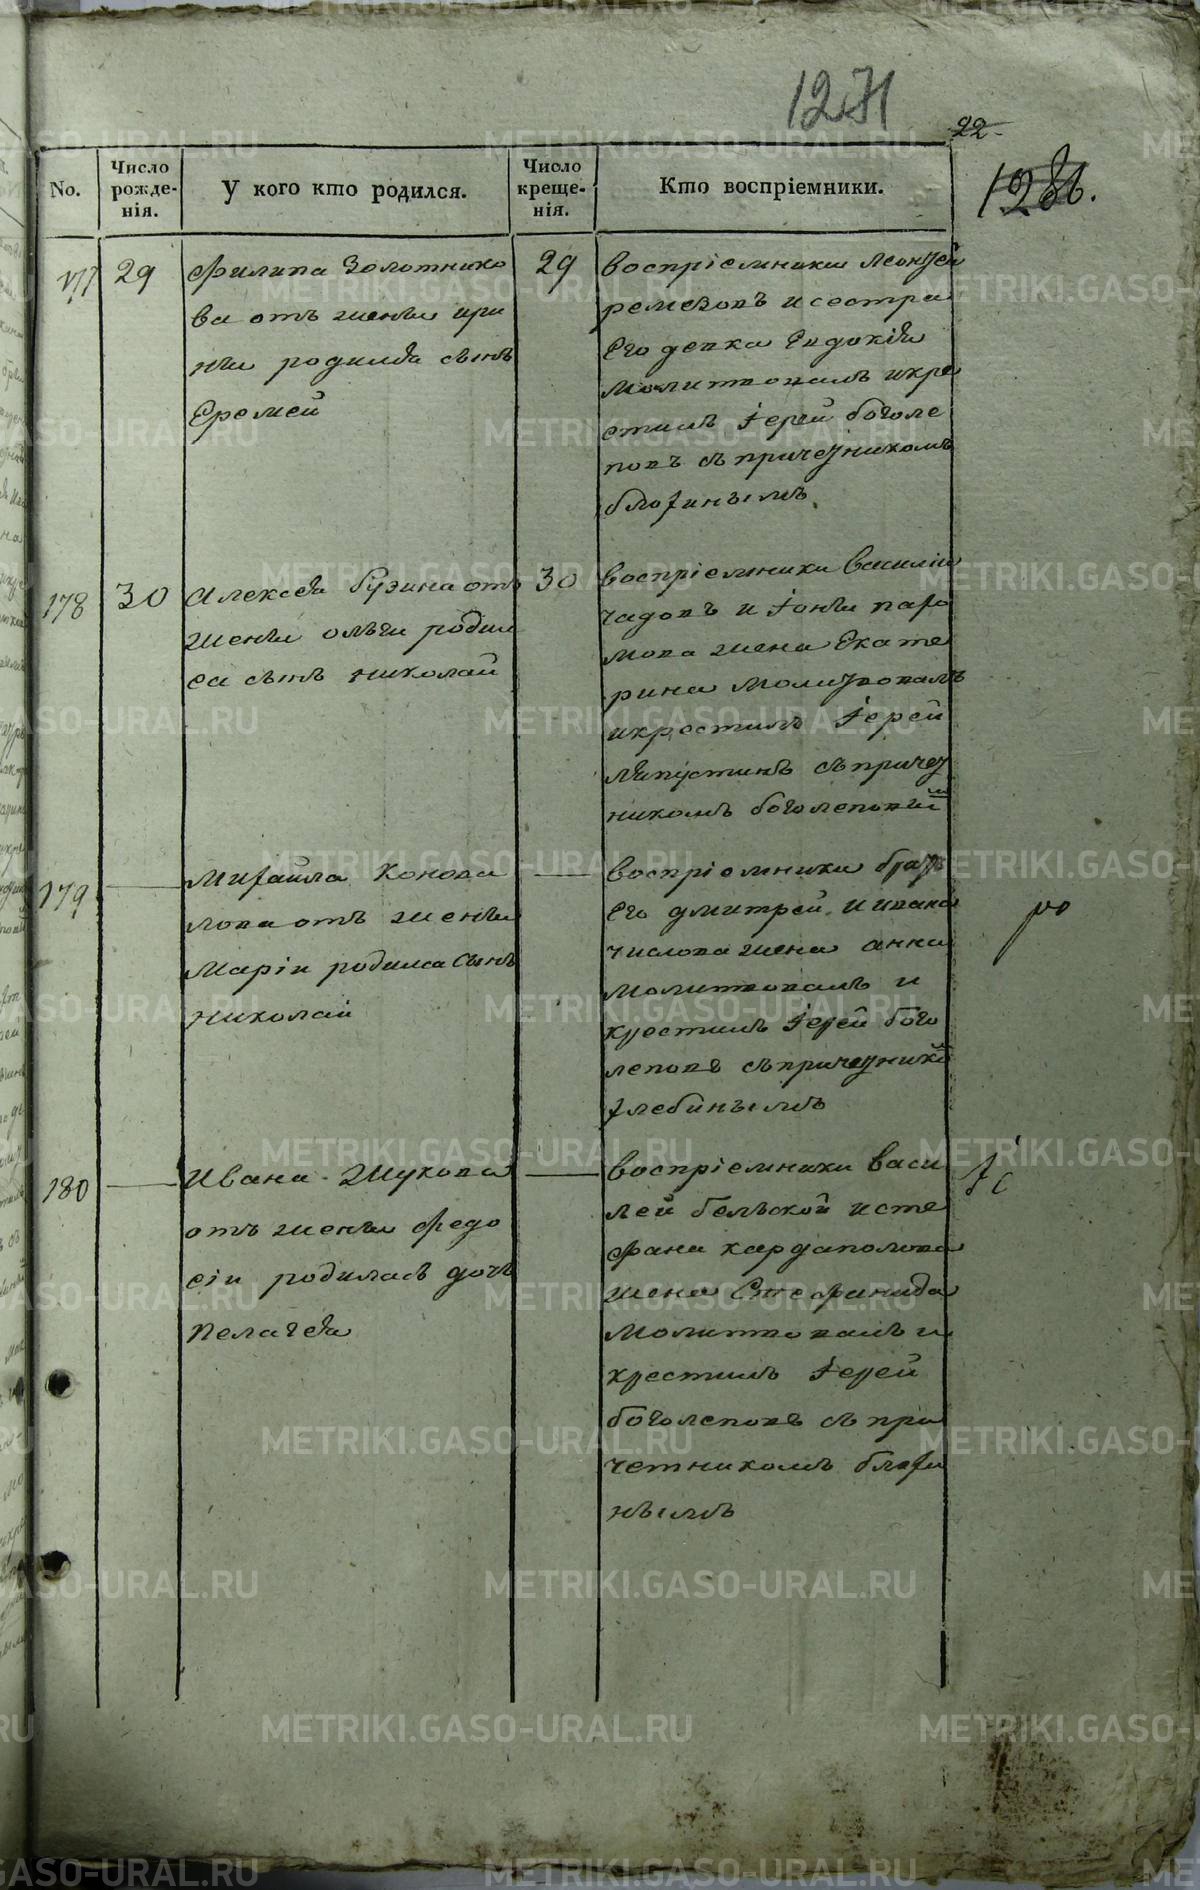 1271
22.
1286.
No.
Число рожде-нія.
У кого кто родился.
Число креще-нія.
Кто воспріемники.
177
29
Филипа Золотнико
ва отъ жены ири
ны родился сынъ
Еремей
29
воспріемники Леонтей
ремезовъ и сестра
Его девка Евдокія
молитвовалъ икре
стилъ іерей боголе
повъ съ причетникомъ
178
30
Алексея бузина отъ
жены ольги родил
са сынъ николай
30
воспріемники василій
чадовъ и
мова жена Екате
рина молитвовалъ
икрестилъ іерей
Ляпустинъ съ причет
никомъ боголеповымъ
179
Михайла Конова
лова отъ жены
Маріи родилса сынъ
николай
воспріемники братъ
Его дмитрей и ивана
числова жена анна
молитвовалъ и
крестилъ іерей бого
леповъ съ причетником
хлебинымъ
180
Ивана Жукова
отъ жены федо
сіи родилась дочь
Пелагея
воспріемники васи
лей бельской и сте
фана кардаполова
жена Стефанида
молитвовалъ и
крестилъ іерей
боголеповъ съ при
четникомъ
нымъ
METRIKI.GASO-URAL.RU